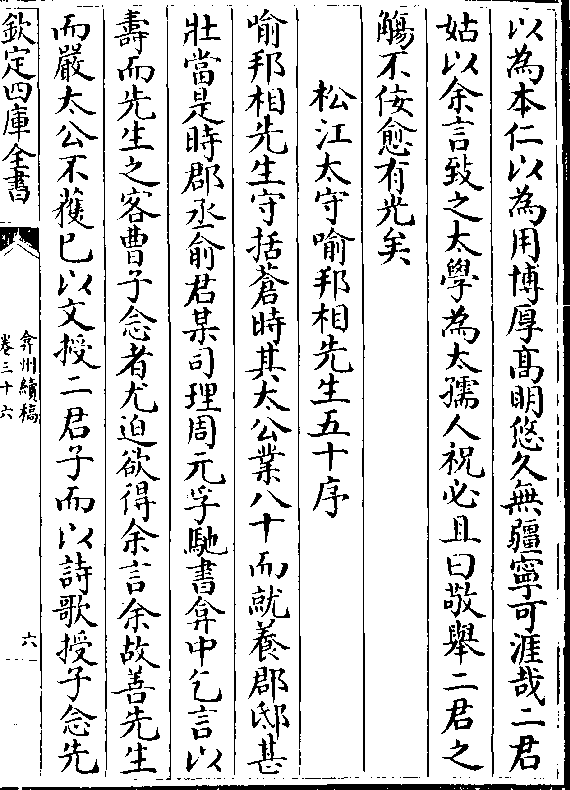 以為本仁以為用博厚髙明悠久無疆寧可涯哉二君
姑以余言致之太學為太孺人祝必且曰敬舉二君之
觴不佞愈有光矣
松江太守喻邦相先生五十序
喻邦相先生守括蒼時其太公業八十而就養郡邸甚
壯當是時郡丞俞君某司理周元孚馳書弇中乞言以
壽而先生之客曹子念者尤迫欲得余言余故善先生
而嚴太公不獲已以文授二君子而以詩歌授子念先
欽定四庫全書
弇州續稿
卷三十六
六